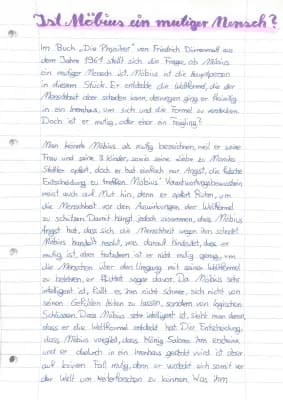 Ist Möbius ein mutiger Mensch?
Im Buch „Die Physiker" von Friedrich Dürrenmatt aus
dem Jahre 1961 stellt sich die Frage, ob Möbius
ein mutiger Mensch ist. Möbius ist die Hauptperson
in diesem Stück. Er entdeckte die Weltformel, die der
Menschheit aber schaden kann, deswegen ging er freiwillig
in ein Irrenhaus, um sich und die Formel zu verstecken.
Doch ist er mutig, oder eher ein Feigling?
Man könnte Möbius als mutig bezeichnen, weil er seine
Frau und seine 3 Kinder, sowie seine Liebe zu Monika
Stettler opfert, doch er hat einfach nur Angst, die falsche
Entscheidung zu treffen. Möbius' Verantwortungsbewusstsein
weist auch auf Mut hin, denn er opfert Ruhm, um
die Menschheit vor den Auswirkungen der Weltformel
zu schützen. Damit hängt jedoch zusammen, dass Möbius
Angst hat, dass sich die Menschheit wegen ihm schadet.
Möbius handelt resolut, was darauf hindeutet, dass er
mutig ist, aber trotzdem ist er nicht mutig genug, um
die Menschen über den Umgang mit seiner Weltformel
zu belehren, er flüchtet sogar davor. Da Möbius sehr
intelligent ist, fällt es ihm nicht schwer, sich nicht von
seinen Gefühlen leiten zu lassen, sondern von logischen
Schlüssen. Dass Möbius sehr intelligent ist, sieht man daran,
dass er die Weltformel entdeckt hat. Die Entscheidung,
dass Möbius vorgibt, dass König Salomo ihm erscheine
und er dadurch in ein Irrenhaus gesteckt wird ist aber
auf keinem Fall mutig, denn er versteckt sich somit vor
der Welt um weiterforschen zu können. Was ihm